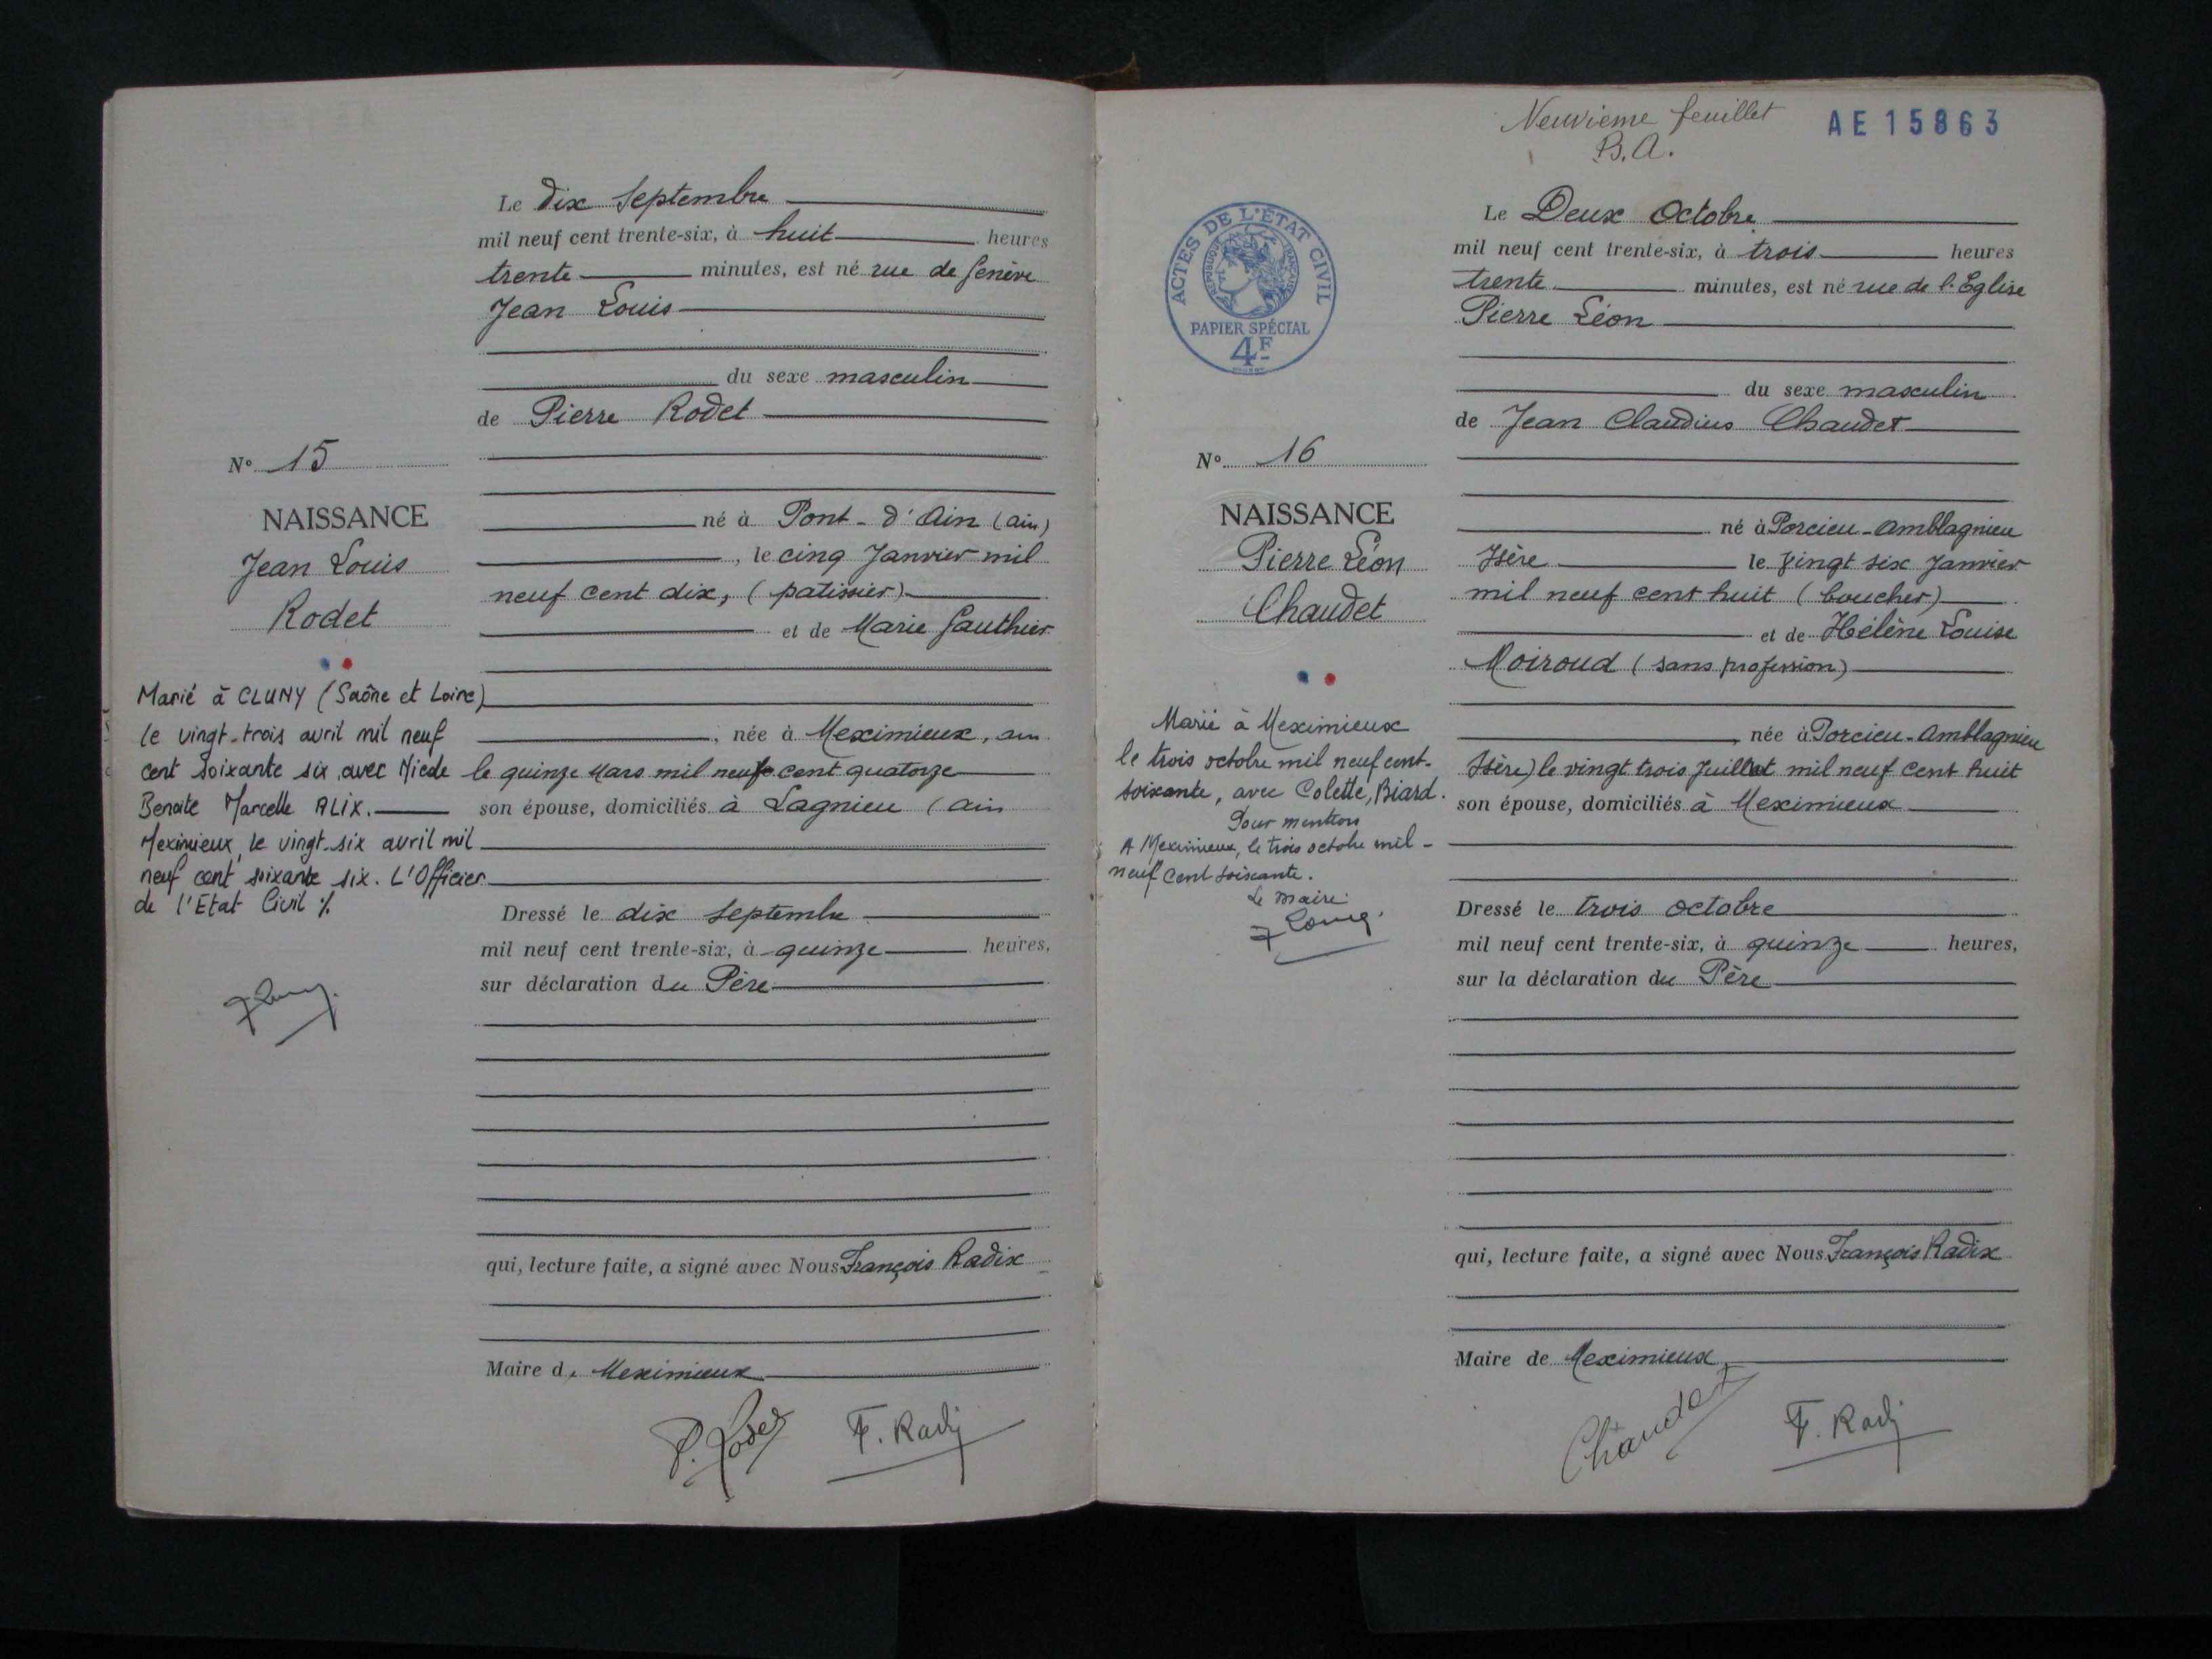 Le dix Septembre
mil neuf cent trente-six, à huit heures
trente minutes, est né rue de Genève
Jean Louis
du sexe masculin
de Pierre Rodet
N° 15
NAISSANCE
Jean Louis
Rodet
né à Pont-d'Ain (ain)
, le cinq Janvier mil
neuf cent dix, (patissier)
et de Marie Gauthier
, née à Meximieux, ain
le quinze Mars mil neuf cent quatorze
son épouse, domiciliés à Lagnieu (ain
Marié à CLUNY (Saône et Loire)
le vingt-trois avril mil neuf
cent soixante six avec
Marcelle ALIX.
Meximieux, le vingt-six avril mil
neuf cent soixante six. L'Officier
de l'Etat Civil %
Dressé le dix Septembre
mil neuf cent trente-six, à quinze heures,
sur déclaration du Père
qui, lecture faite, a signé avec Nous François Radix
Maire de Meximieux
P. Rodet F. Radix
Neuvième feuillet
B.A.
AE15863
ACTES DE L'ÉTAT CIVIL
REPUBLIQUE FRANÇAISE
PAPIER SPÉCIAL
4F
Le Deux Octobre
mil neuf cent trente-six, à trois heures
trente minutes, est né rue de l'Eglise
Pierre Léon
du sexe masculin
de Jean Claudius Chaudet
N° 16
NAISSANCE
Pierre Léon
Chaudet
né à Porcieu-Amblagnieu
Isère le vingt six Janvier
mil neuf cent huit (boucher)
et de Hélène Louise
Moiroud (sans profession)
, née à Porcieu-Amblagnieu
Isère) le vingt trois Juillet mil neuf cent huit
son épouse, domiciliés à Meximieux
Marié à Meximieux
le trois octobre mil neuf cent-
soixante, avec Colette, Biard.
Pour mention
A Meximieux, le trois octobre mil-
neuf cent soixante.
Le Maire
Dressé le trois octobre
mil neuf cent trente-six, à quinze heures,
sur la déclaration du Père
qui, lecture faite, a signé avec Nous François Radix
Maire de Meximieux
Chaudet F. Radix